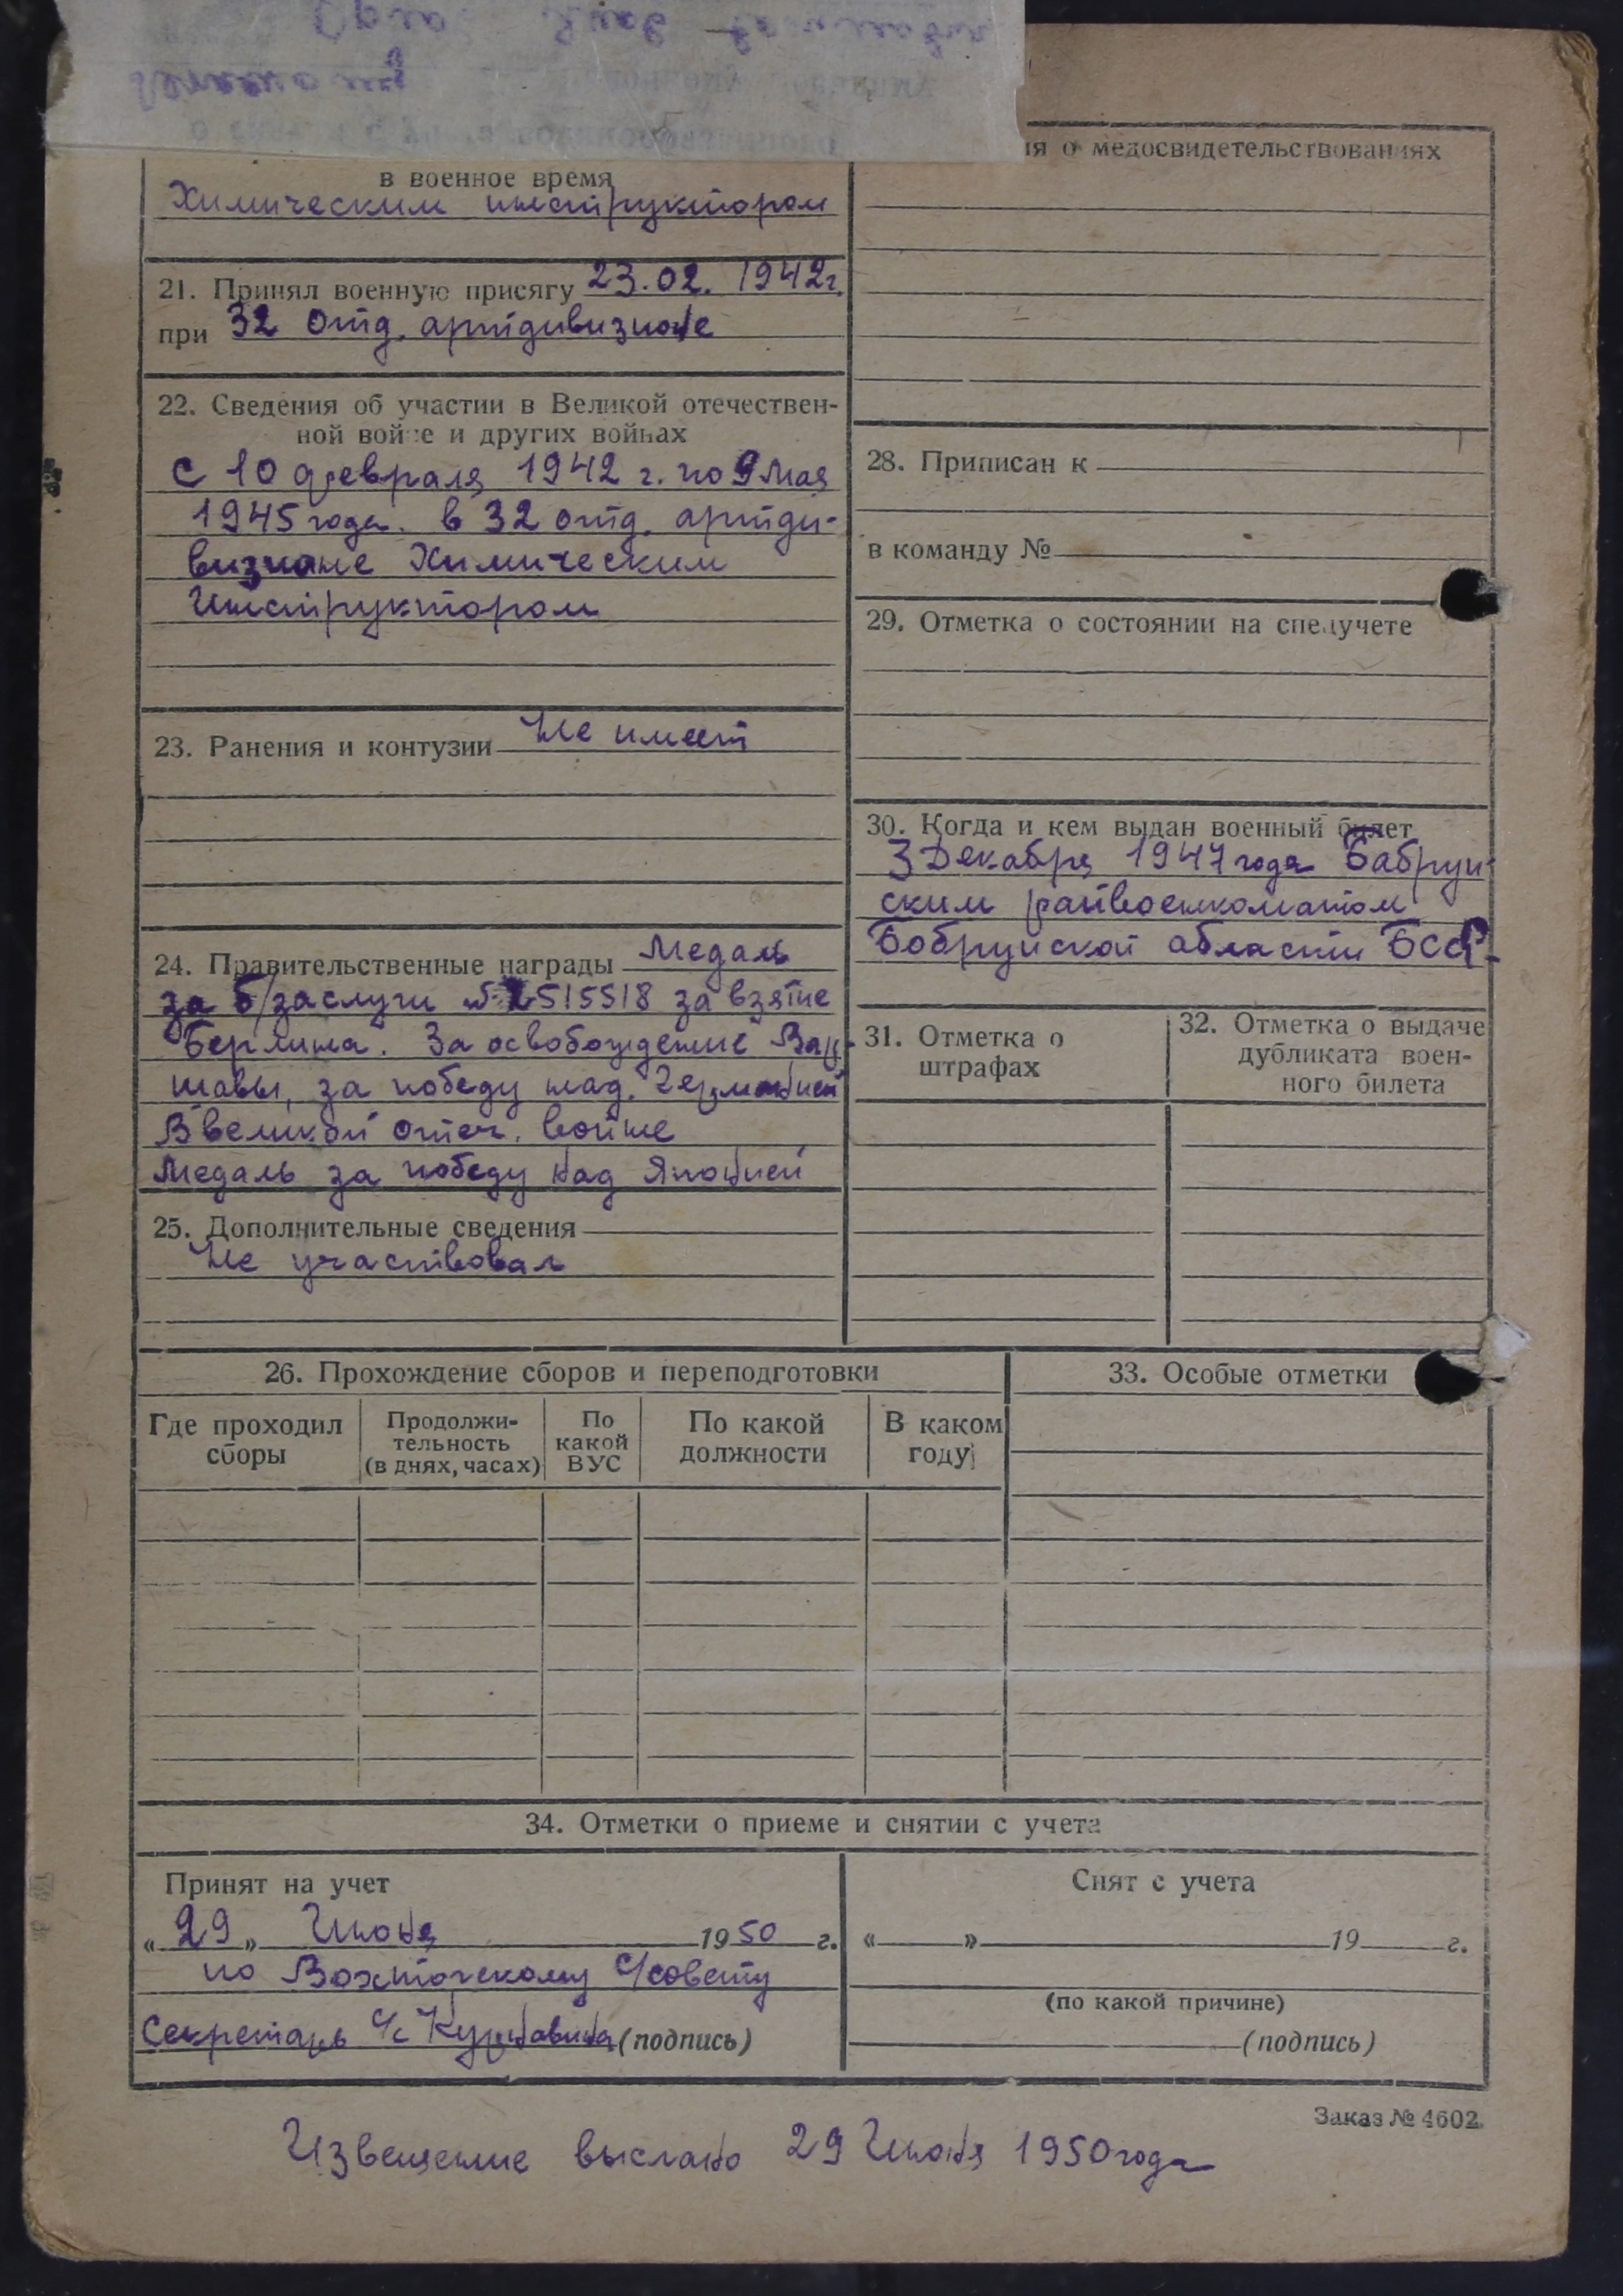 в военное время
Химическим инструктором
21. Принял военную присягу 23.02.1942г.
при 32 отд. артдивизионе
22. Сведения об участии в Великой отечествен-
ной войне и других войнах
С 10 февраля 1942 г. по 9 Мая
1945 года. в 32 отд. артди-
визионе Химическим
Инструктором
23. Ранения и контузии Не имеет
24. Правительственные награды Медаль
за б/заслуги № 2515518 за взятие
Берлина. За освобождение Вар-
шавы, за победу над. Германией
В великой отеч. войне
Медаль за победу над Японией
25. Дополнительные сведения
Не участвовал
ия о медосвидетельствованиях
28. Приписан к
в команду №
29. Отметка о состоянии на спецучете
30. Когда и кем выдан военный билет
3 Декабря 1947 года Бабруй-
ским райвоенкоматом
Бобруйской области БССР.
31. Отметка о
штрафах
32. Отметка о выдаче
дубликата воен-
ного билета
26. Прохождение сборов и переподготовки
Где проходил
сборы
Продолжи-
тельность
(в днях, часах)
По
какой
ВУС
По какой
должности
В каком
году
33. Особые отметки
34. Отметки о приеме и снятии с учета
Принят на учет
«29» Июня 1950 г.
по Вохтожскому С/совету
Секретарь с/с (подпись)
Снят с учета
« » 19 г.
(по какой причине)
(подпись)
Заказ № 4602
Извещение выслано 29 Июня 1950 года